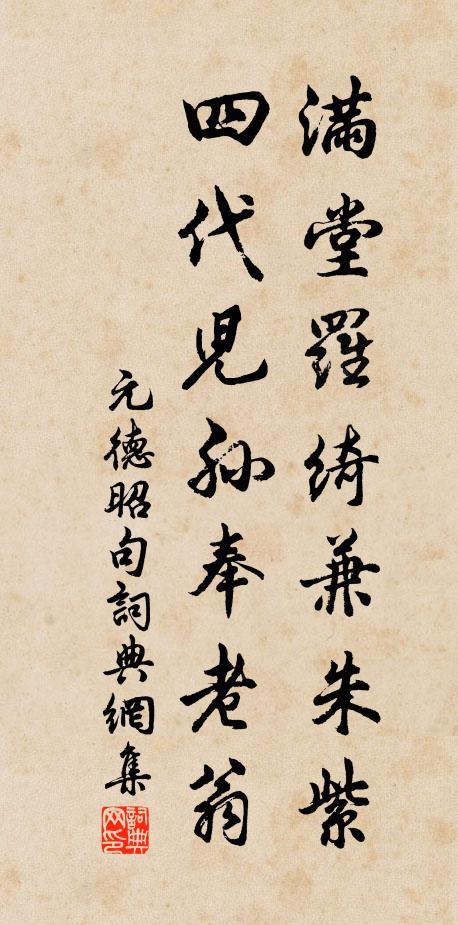 滿堂羅綺兼朱紫
四代兒孫奉老翁
元德昭句詞典網集
詞典网印